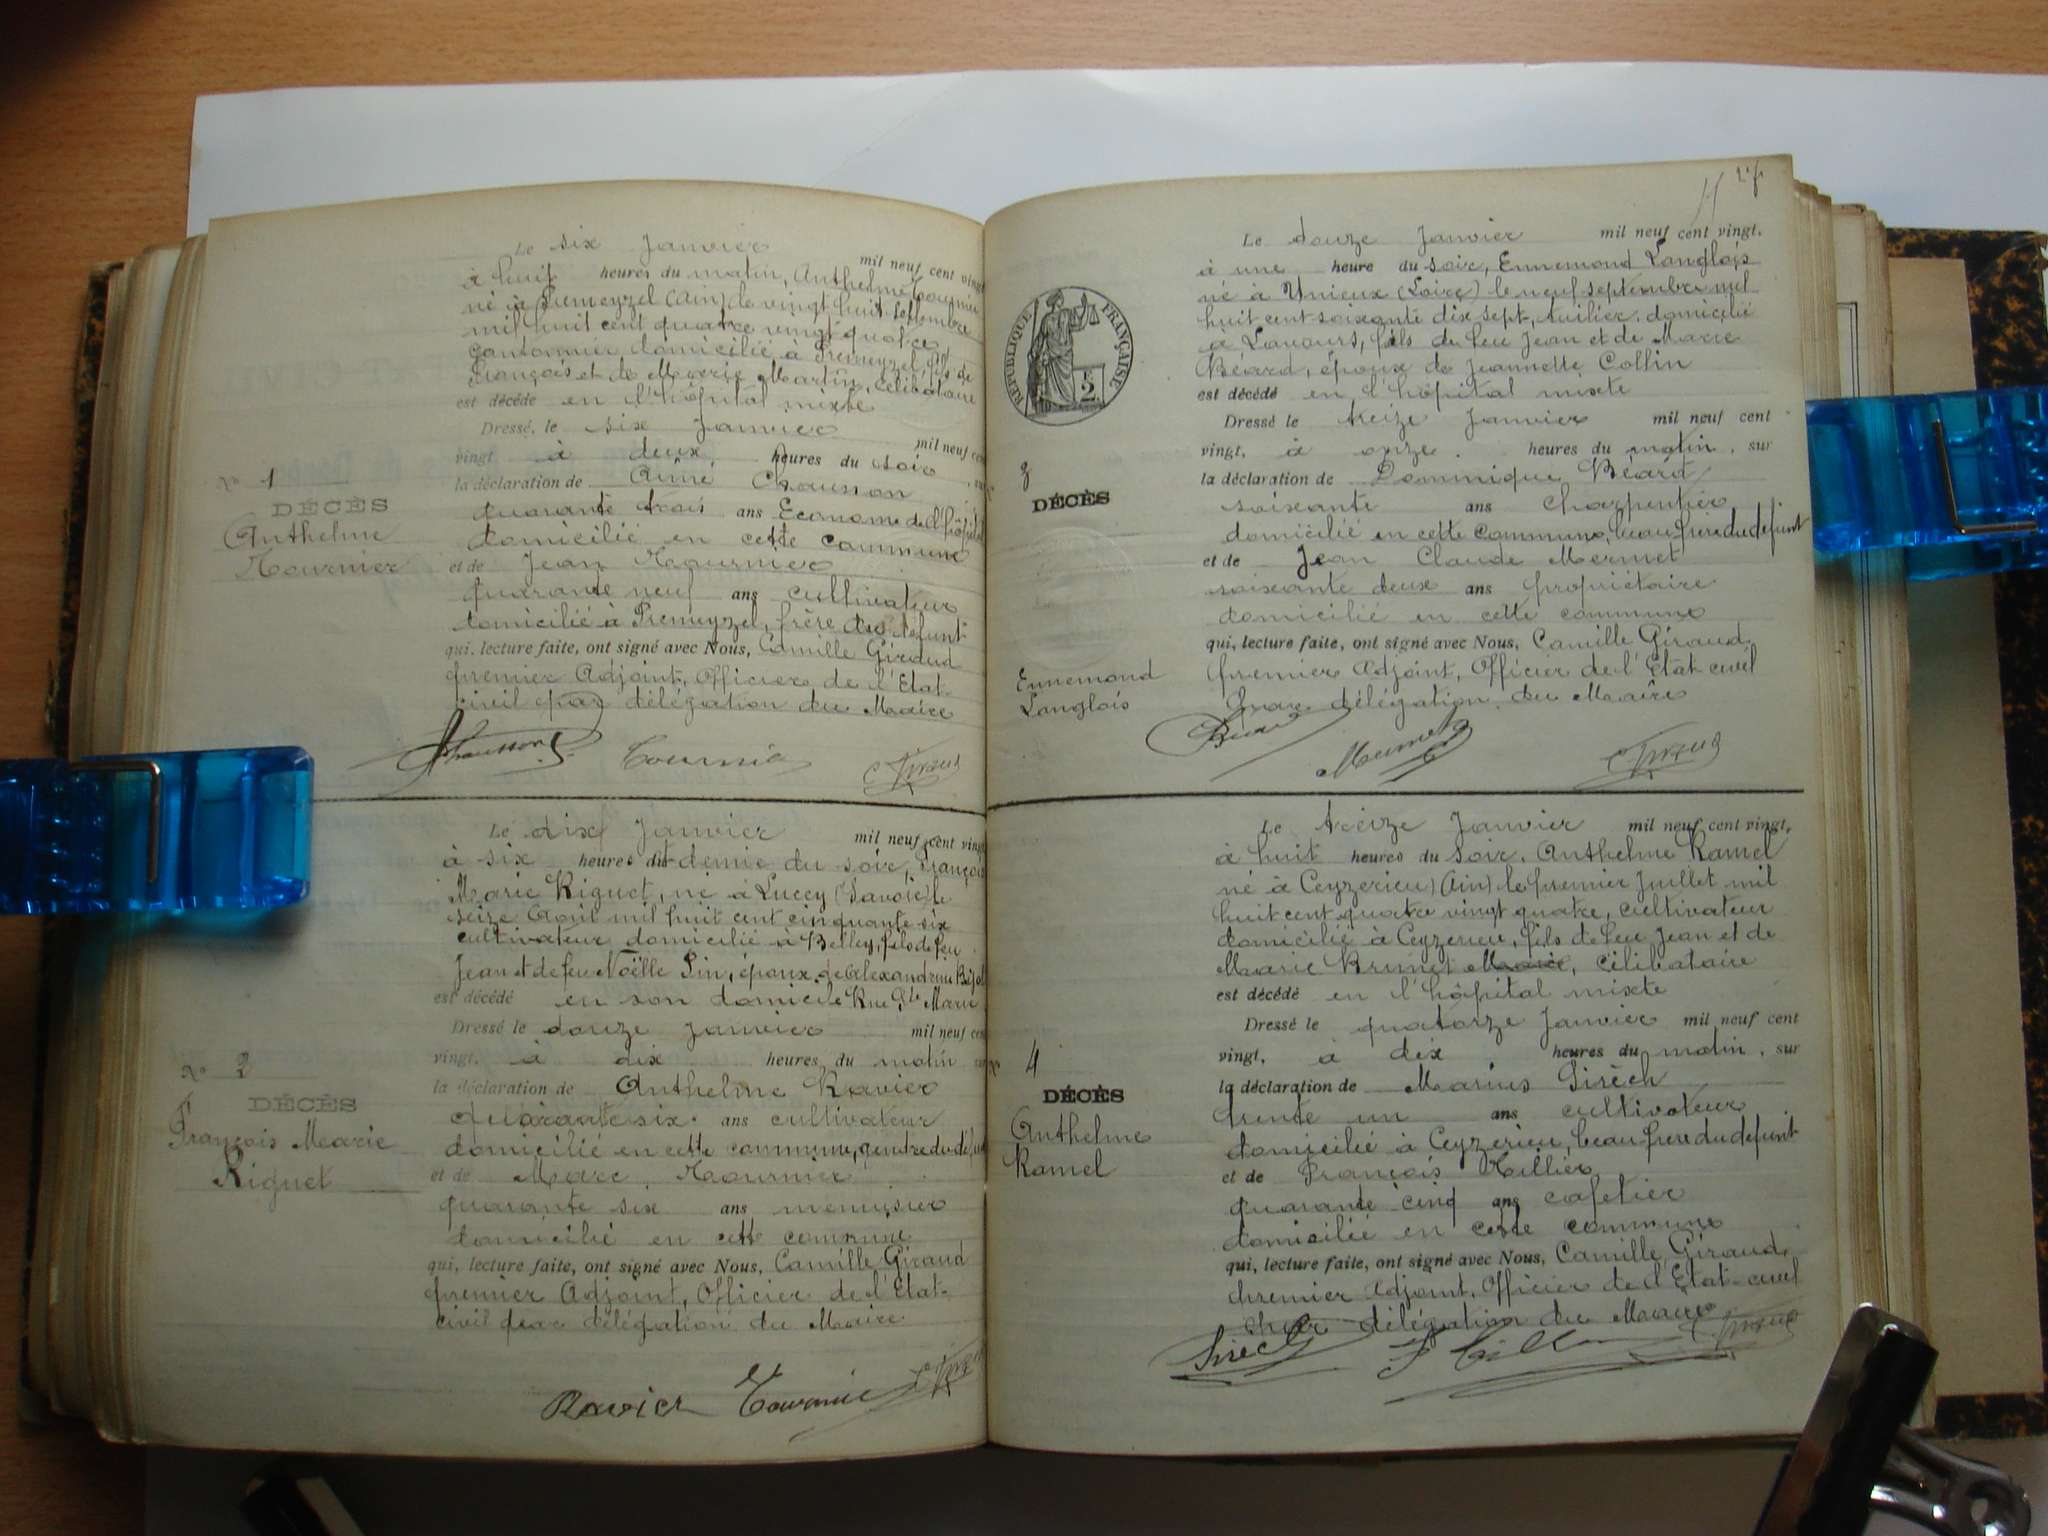 Le six Janvier mil neuf cent vingt
à huit heures du matin, Anthelme Tournier
né à Premeyzel (Ain) le vingt huit Septembre
mil huit cent quatre vingt quatre,
cantonnier domicilié à Premeyzel, fils de
François et de Marie Martin, célibataire
est décédé en l'hôpital mixte
Dressé, le six Janvier mil neuf cent
vingt à deux heures du soir sur
N° 1
la déclaration de Aimé Chausson
DÉCÈS
quarante trois ans Econome de l'hôpital
Anthelme
domicilié en cette commune
Tournier
et de Jean Tournier
quarante neuf ans cultivateur
domicilié à Premeyzel, frère du défunt
qui, lecture faite, ont signé avec Nous, Camille Giraud
premier Adjoint, Officier de l'Etat-
civil par délégation du Maire
Chausson Tournier C. Giraud
Le dix Janvier mil neuf cent vingt
à six heures et demie du soir, François
Marie Riguet, né à Lucey (Savoie) le
seize Août mil huit cent cinquante six
cultivateur domicilié à Belley, fils de feu
Jean et de feu Noëlle Pin, époux de Alexandrine
est décédé en son domicile Rue Ste Marie
Dressé le douze Janvier mil neuf cent
vingt, à dix heures du matin sur
N° 2
la déclaration de Anthelme Ravier
DÉCÈS
quarante six ans cultivateur
François Marie
domicilié en cette commune, gendre du défunt
Riguet
et de Marc Tournier
quarante six ans menuisier
domicilié en cette commune
qui, lecture faite, ont signé avec Nous, Camille Giraud
premier Adjoint, Officier de l'Etat-
civil par délégation du Maire
Ravier Tournier C. Giraud
Le douze Janvier mil neuf cent vingt,
à une heure du soir, Ennemond Langlois
né à Unieux (Loire) le neuf septembre mil
huit cent soixante dix sept, tuilier, domicilié
à Lavours, fils de feu Jean et de Marie
Béard, époux de Jeannette Collin
est décédé en l'hôpital mixte
RÉPUBLIQUE FRANÇAISE
2
Dressé le treize Janvier mil neuf cent
vingt, à onze heures du matin, sur
3
la déclaration de Dominique Béard
DÉCÈS
soixante ans charpentier
domicilié en cette commune, beau frère du défunt
et de Jean Claude Mermet
soixante deux ans propriétaire
domicilié en cette commune
qui, lecture faite, ont signé avec Nous, Camille Giraud,
Ennemond
premier Adjoint, Officier de l'Etat-civil
Langlois
par délégation du Maire
Béard Mermet C. Giraud
Le treize Janvier mil neuf cent vingt,
à huit heures du soir, Anthelme Ramel
né à Ceyzerieu (Ain) le premier Juillet mil
huit cent quatre vingt quatre, cultivateur
domicilié à Ceyzerieu, fils de feu Jean et de
Marie Brunet Marie, célibataire
est décédé en l'hôpital mixte
Dressé le quatorze Janvier mil neuf cent
N° 4
vingt, à dix heures du matin, sur
la déclaration de Marius Sirèch
DÉCÈS
trente un ans cultivateur
Anthelme
domicilié à Ceyzerieu, beau frère du défunt
Ramel
et de François Tillier
quarante cinq ans cafetier
domicilié en cette commune
qui, lecture faite, ont signé avec Nous, Camille Giraud,
premier Adjoint, Officier de l'Etat-civil
par délégation du Maire
Sirech F. Tillier C. Giraud